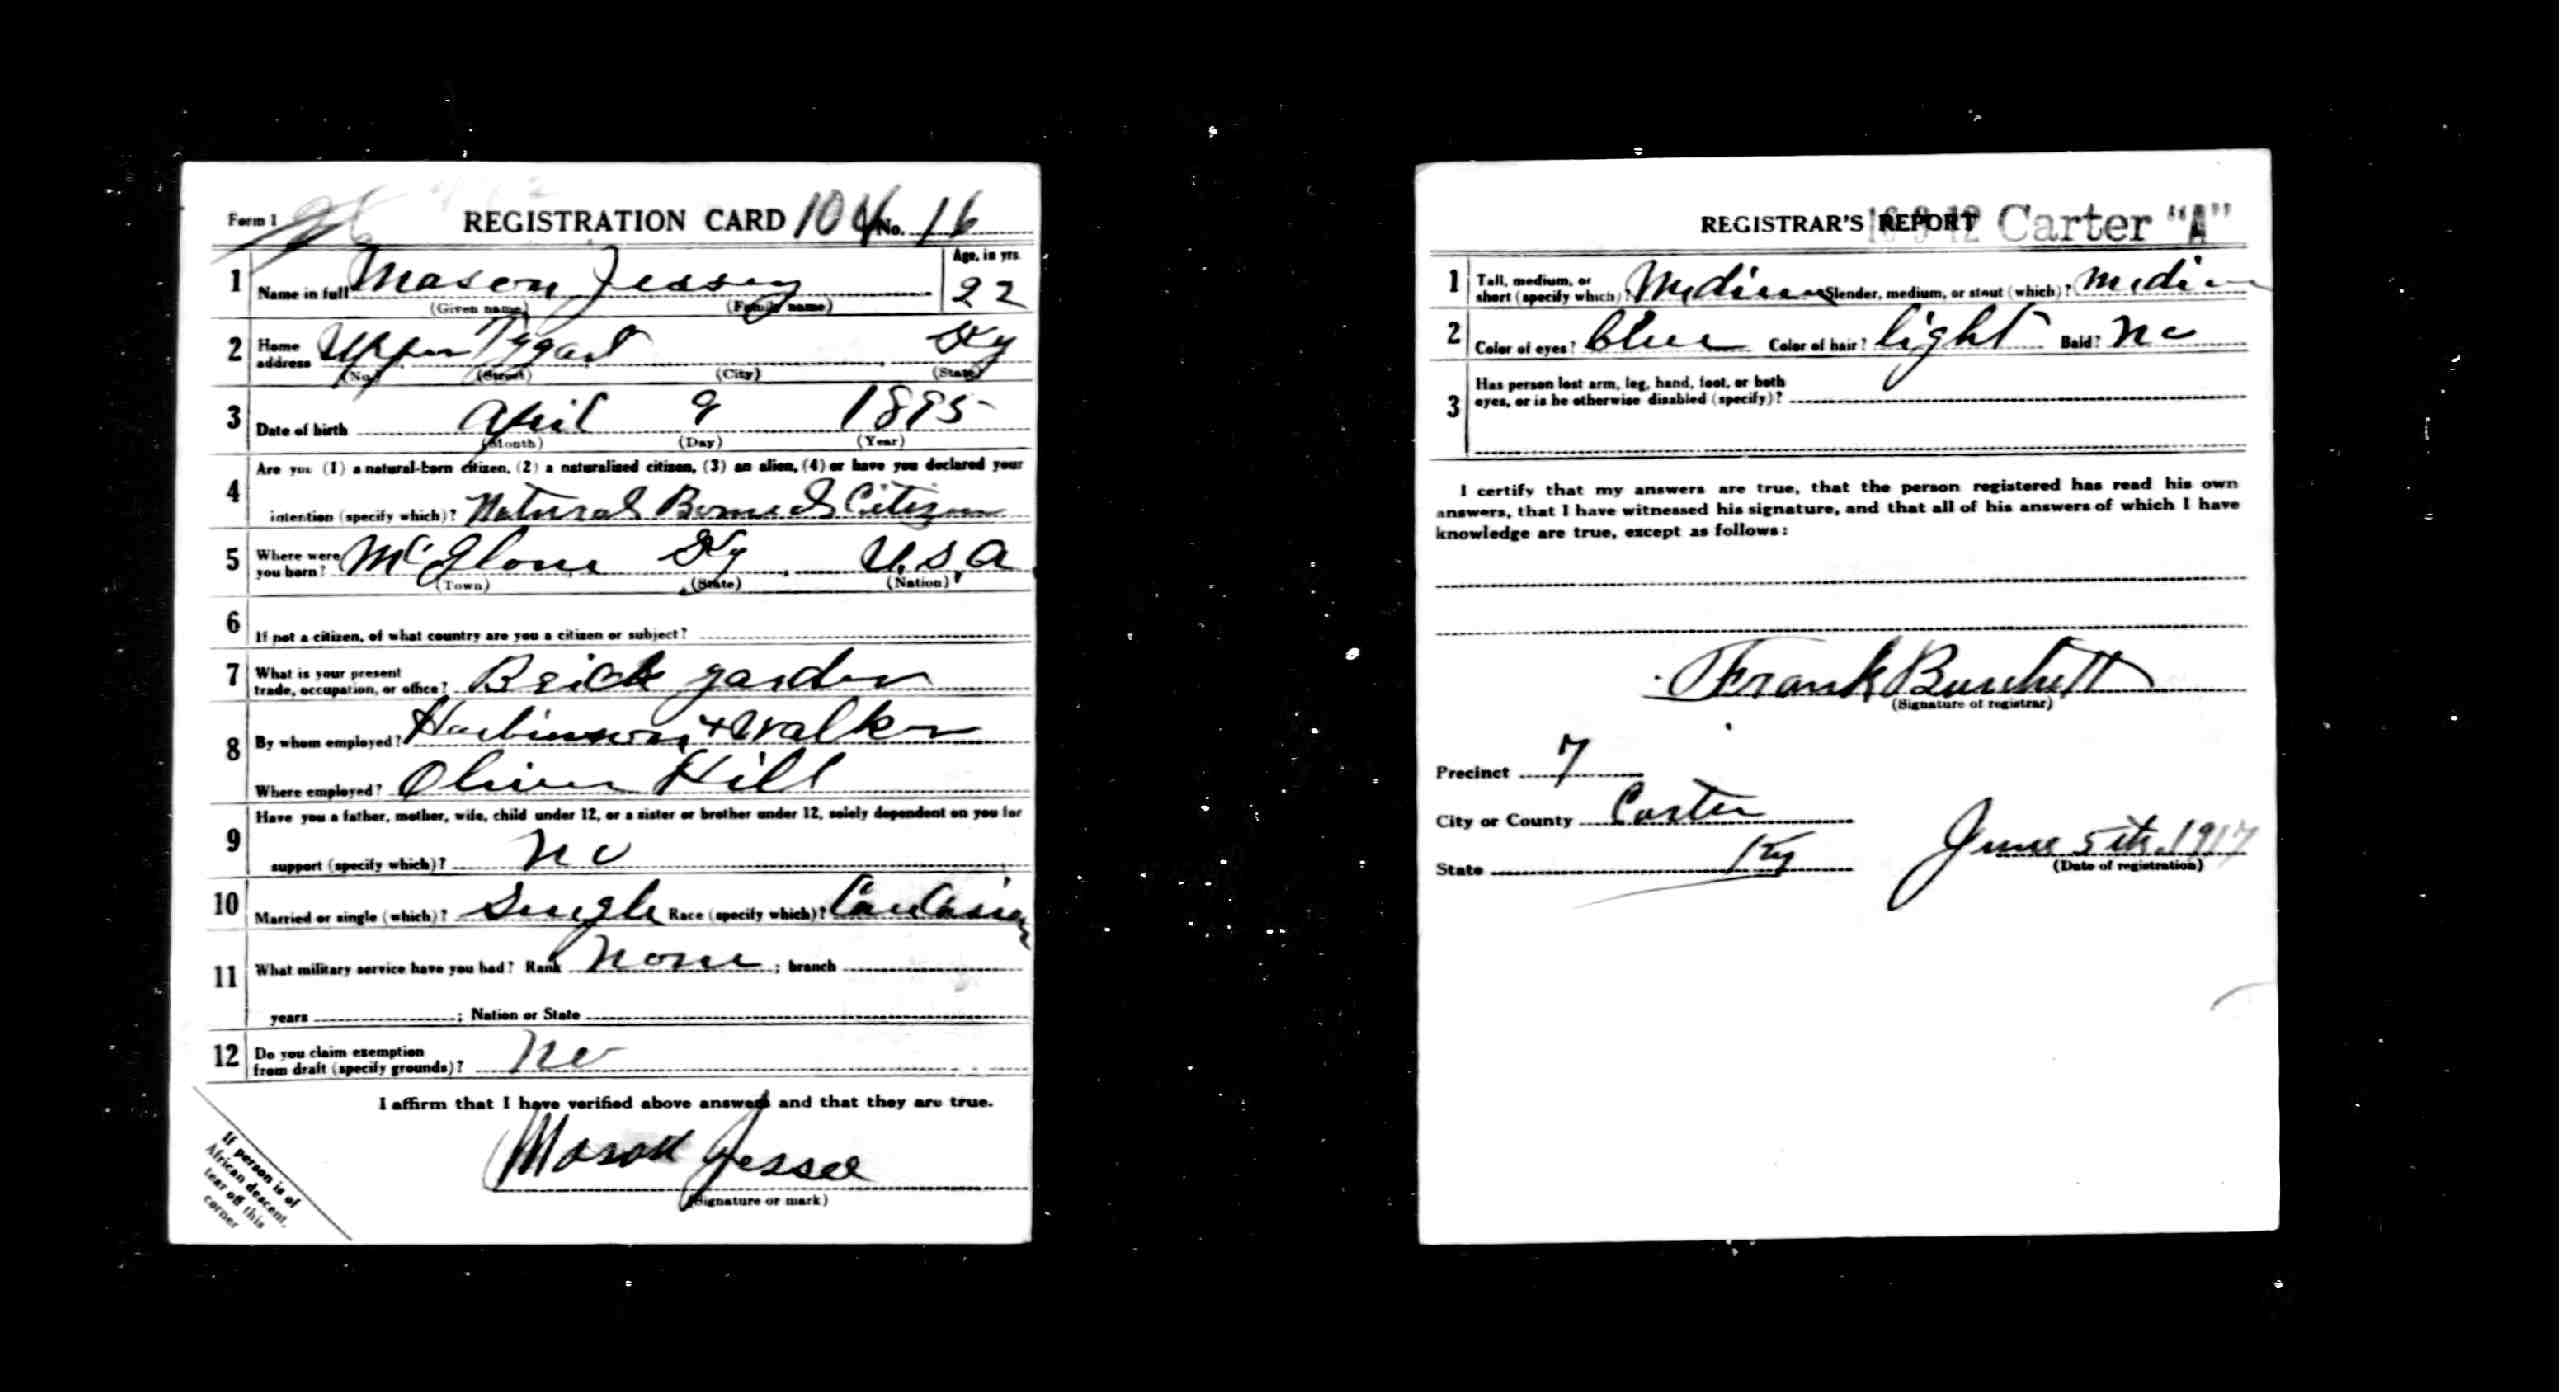 Form 1 REGISTRATION CARD 104 No. 16
1 Name in full Mason Jessey Age, in yrs. 22
(Given name) (Family name)
2 Home address Upper Tygart Ky
(No.) (Street) (City) (State)
3 Date of birth April 9 1895
(Month) (Day) (Year)
4 Are you (1) a natural-born citizen, (2) a naturalized citizen, (3) an alien, (4) or have you declared your
intention (specify which)? Natural Borned Citizen
5 Where were you born? McGlone Ky U.S.A
(Town) (State) (Nation)
6 If not a citizen, of what country are you a citizen or subject?
7 What is your present
trade, occupation, or office? Brick garden
8 By whom employed? Harbinson + Walker
Where employed? Oliver Hill
9 Have you a father, mother, wife, child under 12, or a sister or brother under 12, solely dependent on you for
support (specify which)? no
10 Married or single (which)? Single Race (specify which)? Caucasian
11 What military service have you had? Rank none ; branch
years ; Nation or State
12 Do you claim exemption
from draft (specify grounds)? no
I affirm that I have verified above answers and that they are true.
Mason Jessee
(Signature or mark)
If person is of
African descent,
tear off this
corner
REGISTRAR'S REPORT 16-3-12 Carter "A"
1 Tall, medium, or
short (specify which)? Medium Slender, medium, or stout (which)? medium
2 Color of eyes? blue Color of hair? light Bald? no
3 Has person lost arm, leg, hand, foot, or both
eyes, or is he otherwise disabled (specify)?
I certify that my answers are true, that the person registered has read his own
answers, that I have witnessed his signature, and that all of his answers of which I have
knowledge are true, except as follows:
Frank Burchett
(Signature of registrar)
Precinct 7
City or County Carter
State Ky June 5th, 1917
(Date of registration)